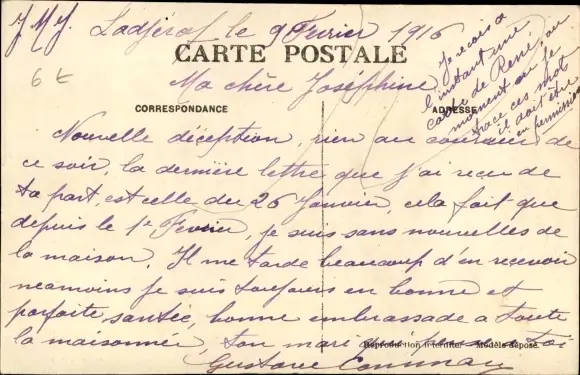 J.M.J. Ladjérof le 9 Février 1916
CARTE POSTALE
Ma chère Joséphine
CORRESPONDANCE
ADRESSE
Je reçois à
l'instant une
carte de René, au
moment où je
trace ces mots
il doit être
en permission
6 t
Nouvelle déception, rien au courrier de
ce soir, la dernière lettre que j'ai reçu de
ta part, est celle du 26 Janvier, cela fait que
depuis le 1e Février, je suis sans nouvelles de
la maison. Il me tarde beaucoup d'en recevoir
neamoins je suis toujours en bonne et
parfaite santée, bonne embrassade a toute
la maisonnée, ton mari qui pense a toi
Reproduction interdite. Modèle déposé.
Gustave